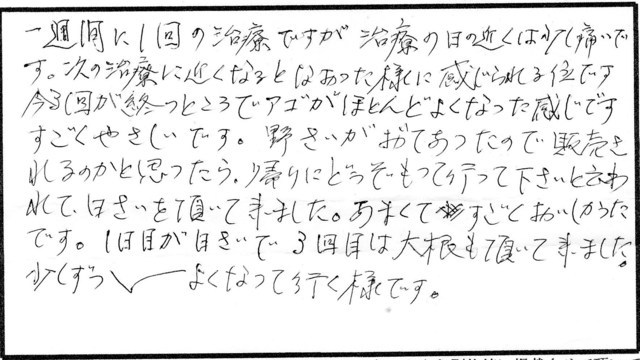 一週間に1回の治療ですが治療の日の近くは少し痛いで
す。次の治療に近くなるとなおった様に感じられる位です
今3回が終ったところでアゴがほとんどよくなった感じです
すごくやさしいです。野さいがおてあったので販売さ
れるのかと思ったら、帰りにどうぞもって行って下さいと云わ
れて、白さいを頂いて来ました。あまくてすごくおいしかった
です。1日目が白さいで3回目は大根も頂いて来ました。
少しずつよくなって行く様です。